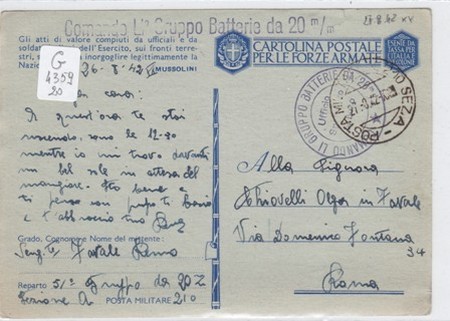 Comando LI° Gruppo Batterie da 20 m/m
28-8-42 XX
Gli atti di valore compiuti da ufficiali e da
soldati dell'Esercito, sui fronti terre-
stri, inorgoglire legittimamente la
Nazione
MUSSOLINI
G
4359
20
26-8-42
CARTOLINA POSTALE
PER LE FORZE ARMATE
ESENTE DA
TASSA PER
COMANDO LI GRUPPO BATTERIE DA 20
Ufficio
POSTA MILITARE SEZ. A
cari
A quest'ora te stai
nascendo sono le 12-30
mentre io mi trovo davanti
un bel sole in attesa del
mangiare. Sto bene e
ti penso con papà ti bacio
e t'abbraccio tuo
Grado, Cognome e Nome del mittente:
Serg. Favale Remo
Reparto 51° Gruppo da 20
Sezione A POSTA MILITARE 210
Alla Signora
Chiovelli Olga in Favale
Via Domenico Fontana
34
Roma